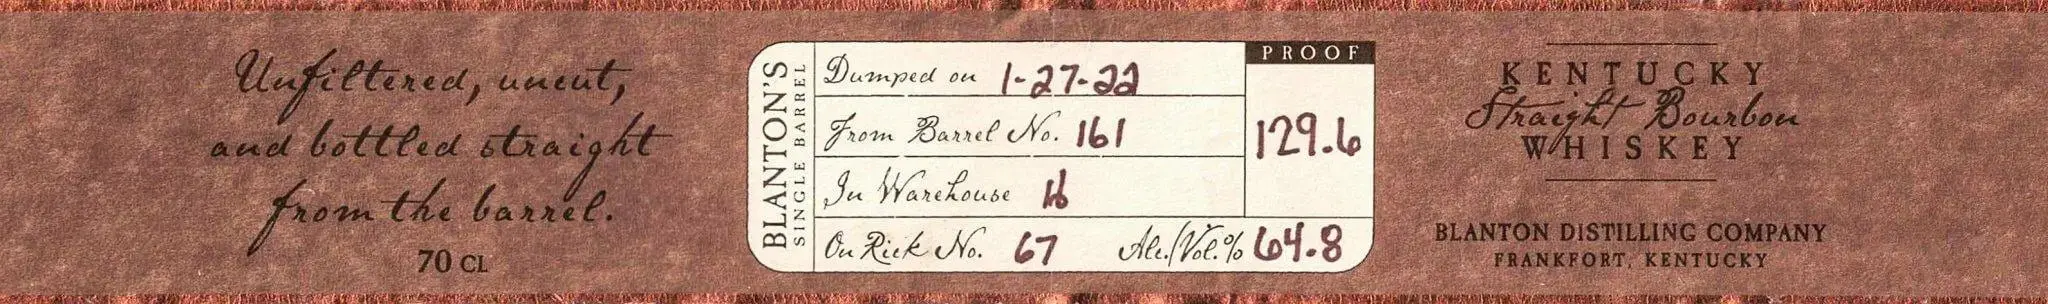 Unfiltered, uncut,
and bottled straight
from the barrel.
70 CL
BLANTON'S
SINGLE BARREL
Dumped on 1-27-22
From Barrel No. 161
In Warehouse H
On Rick No. 67 Alc./Vol.% 64.8
PROOF
129.6
KENTUCKY
Straight Bourbon
WHISKEY
BLANTON DISTILLING COMPANY
FRANKFORT, KENTUCKY